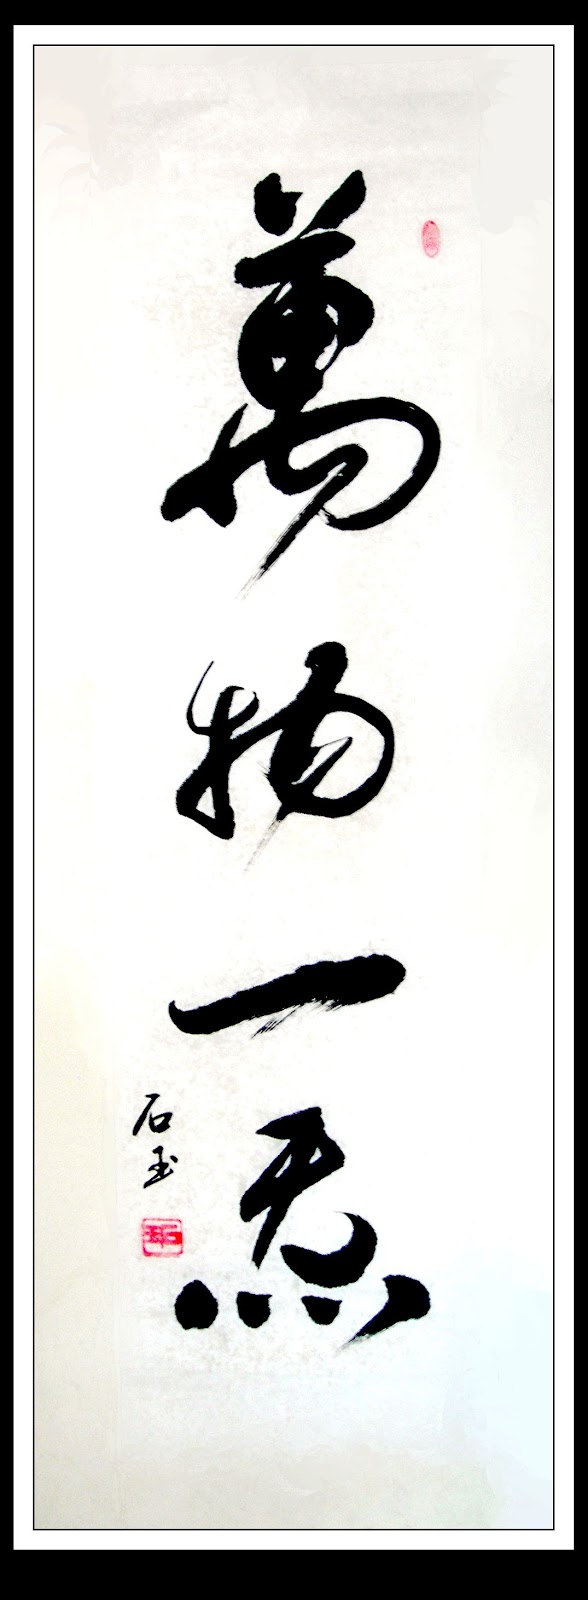 萬物一炁
石玉